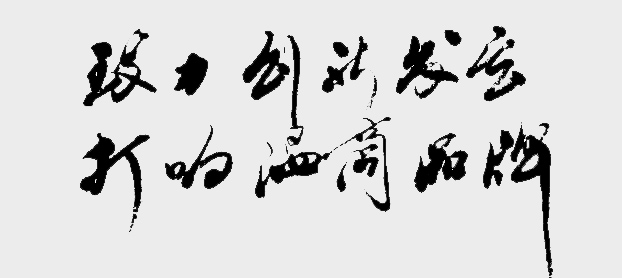 致力创新发展
打响温商品牌